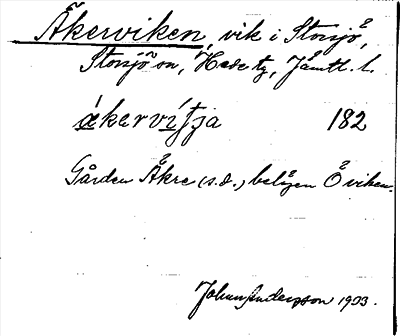 Åkerviken, vik i Storsjö,
Storsjö sn, Hede tg, Jämtl. l.
ákervítja 182
Gården Åkre (s.d.), belägen Ö viken.
Johan Andersson 1903.